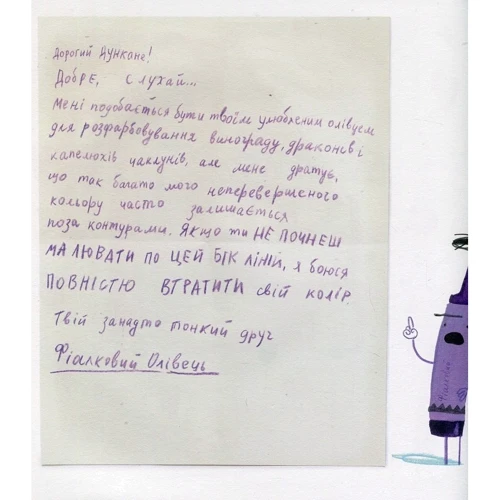 Дорогий Дункане!
Добре, слухай...
Мені подобається бути твоїм улюбленим олівцем
для розфарбовування винограду, драконів і
капелюхів чаклунів, але мене дратує,
що так багато мого неперевершеного
кольору часто залишається
поза контурами. Якщо ти НЕ ПОЧНЕШ
МАЛЮВАТИ ПО ЦЕЙ БІК ЛІНІЙ, я боюся
ПОВНІСТЮ ВТРАТИТИ свій колір.
Твій занадто тонкий друг
Фіалковий Олівець